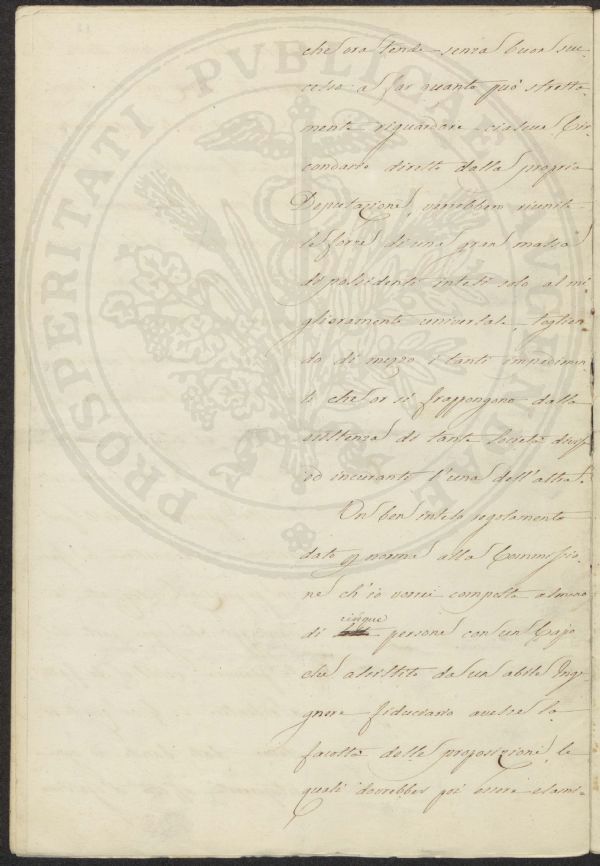 che ora tende senza buon suc-
cesso a far quanto può stretta-
mente riguardare ciascun Cir-
condario diretto dalla propria
Deputazione, verrebbero riunite
le forze di una gran massa
di possidenti intesi solo al mi
glioramento universale, toglien
do di mezzo i tanti impedimen-
ti che or si frappongono dalla
esistenza di tante società divise
ed incuranti l'una dell'altra.
Un ben inteso regolamento
dato p norma alla Commissio-
ne ch'io vorrei composta almeno
cinque
di persone con un Capo
che assistito da un abile Inge-
gnere fiduciario avesse la
facoltà delle proposizioni le
quali dovrebber poi essere esami-
PROSPERITATI PVBLICAE AVGENDAE